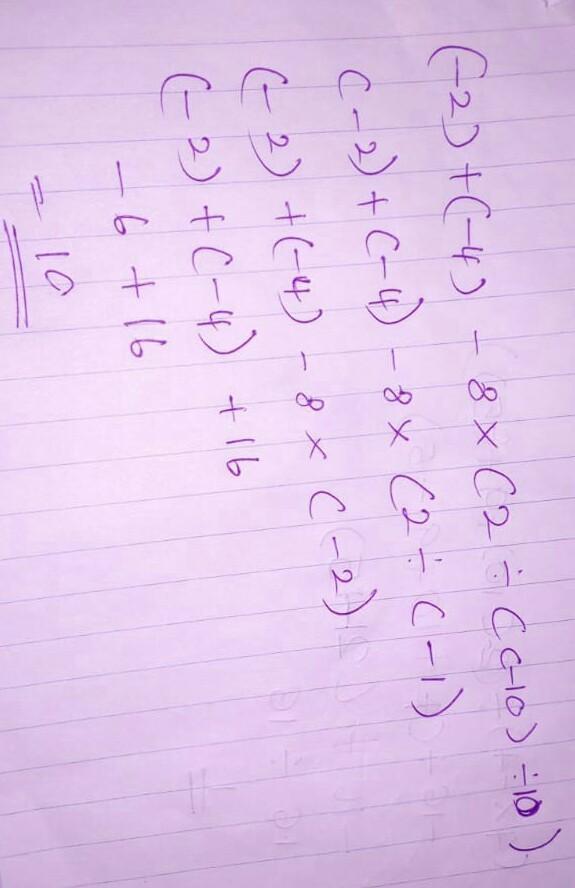 (-2) + (-4) - 8 × (2 ÷ ((-10) ÷ 10)
(-2) + (-4) - 8 × (2 ÷ (-1)
(-2) + (-4) - 8 × (-2)
(-2) + (-4) + 16
- 6 + 16
= 10